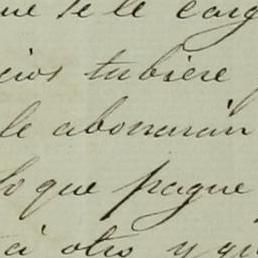 ue se le carg
cios tubiere
le abonarán
lo que pague
otro y qu